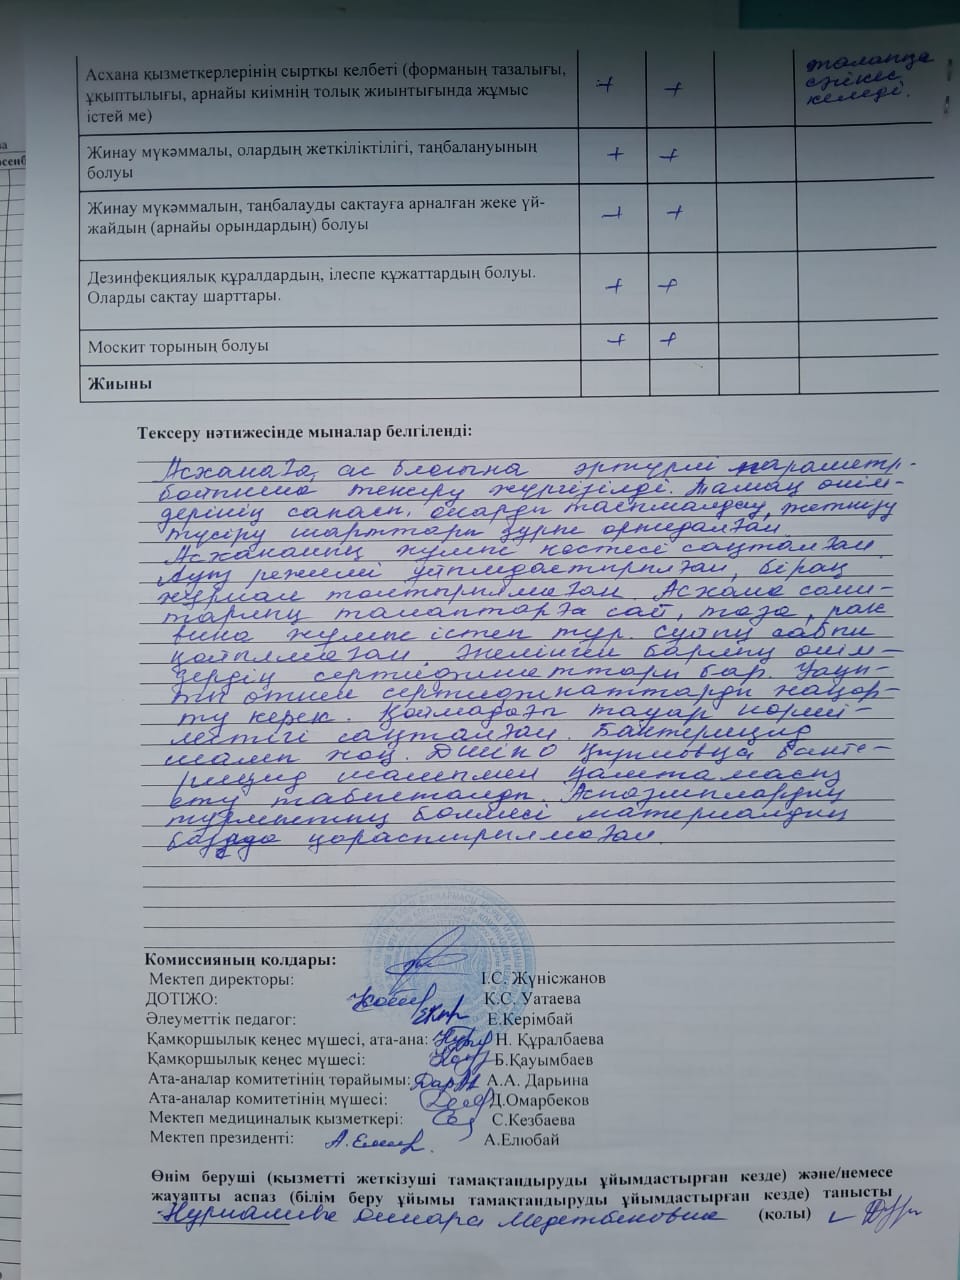 Асхана қызметкерлерінің сыртқы келбеті (форманың тазалығы,
ұқыптылығы, арнайы киімнің толық жиынтығында жұмыс
істей ме)
+ +
талапқа
сәйкес
келеді.
Жинау мүкәммалы, олардың жеткіліктілігі, таңбалануының
болуы
+ +
Жинау мүкәммалын, таңбалауды сақтауға арналған жеке үй-
жайдың (арнайы орындардың) болуы
+ +
Дезинфекциялық құралдардың, ілеспе құжаттардың болуы.
Оларды сақтау шарттары.
+ +
Москит торының болуы
+ +
Жиыны
Тексеру нәтижесінде мыналар белгіленді:
Асханаға, ас блогына әртүрлі параметр-
бойынша тексеру жүргізілді. Тамақ өнім-
дерінің сапасы, оларды тасымалдау, жеткізу
түсіру шарттары дұрыс орындалған
Асхананың жұмыс кестесі сақталған.
Ауыз режимі ұйымдастырылған, бірақ
журнал толтырылмаған. Асхана сани-
тарлық талаптарға сай, таза, рак
вина жұмыс істеп тұр. Сұйық сабын
қойылмаған. Әкелінген барлық өнім-
дердің сертификаттары бар. Уақы-
ты өткен сертификаттарды жаңар-
ту керек. Қоймадағы тауар
сақталған. Бактерицид
шамын жоқ.
шаммен қамтамасыз
ету табысталды. Аспазшылардың
бөлмесі материалдық
базада қарастырылмаған.
Комиссияның қолдары:
Мектеп директоры: І.С. Жүнісжанов
ДОТІЖО: К.С. Уатаева
Әлеуметтік педагог: Е.Керімбай
Қамқоршылық кеңес мүшесі, ата-ана: Н. Құралбаева
Қамқоршылық кеңес мүшесі: Б.Қауымбаев
Ата-аналар комитетінің төрайымы: А.А. Дарьина
Ата-аналар комитетінің мүшесі: Д.Омарбеков
Мектеп медициналық қызметкері: С.Кезбаева
Мектеп президенті: А.Елюбай
Өнім беруші (қызметті жеткізуші тамақтандыруды ұйымдастырған кезде) және/немесе
жауапты аспаз (білім беру ұйымы тамақтандыруды ұйымдастырған кезде) танысты
Динара Медетбековна (қолы)